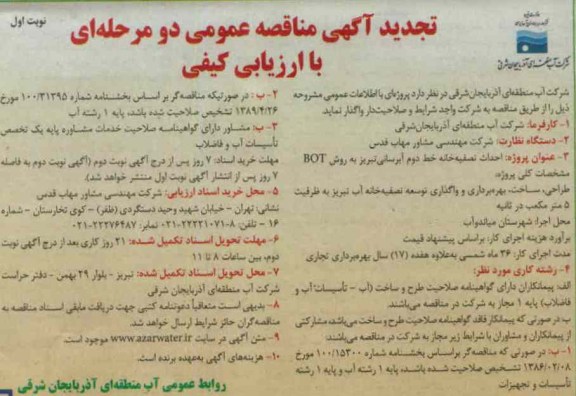 نوبت اول
تجدید آگهی مناقصه عمومی دو مرحله‌ای
با ارزیابی کیفی
شرکت آب منطقه‌ای آذربایجان شرقی
شرکت آب منطقه‌ای آذربایجان‌شرقی در نظر دارد پروژه‌ای با اطلاعات عمومی مشروحه
ذیل را از طریق مناقصه به شرکت واجد شرایط و صلاحیت‌دار واگذار نماید
۱- کارفرما: شرکت آب منطقه‌ای آذربایجان‌شرقی
۲- دستگاه نظارت: شرکت مهندسی مشاور مهاب قدس
۳- عنوان پروژه: احداث تصفیه‌خانه خط دوم آبرسانی‌تبریز به روش BOT
مشخصات کلی پروژه:
طراحی، ساخت، بهره‌برداری و واگذاری توسعه تصفیه‌خانه آب تبریز به ظرفیت
۵ متر مکعب در ثانیه
محل اجرا: شهرستان میاندوآب
برآورد هزینه اجرای کار: براساس پیشنهاد قیمت
مدت اجرای کار: ۳۶ ماه شمسی به‌علاوه هفده (۱۷) سال بهره‌برداری تجاری
۴- رشته کاری مورد نظر:
الف: پیمانکاران دارای گواهینامه صلاحیت طرح و ساخت (آب – تأسیسات آب و
فاضلاب) پایه ۱ مجاز به شرکت در مناقصه می‌باشند.
ب: در صورتی که پیمانکار فاقد گواهینامه صلاحیت طرح و ساخت می‌باشد، مشارکتی
از پیمانکاران و مشاوران با شرایط زیر مجاز به شرکت در مناقصه می‌باشند:
۱- ب: در صورتی که مناقصه‌گر براساس بخشنامه شماره ۱۰۰/۱۵۳۰۰ مورخ
۱۳۸۶/۰۲/۰۸ تشخیص صلاحیت شده باشد، پایه ۱ رشته آب و پایه ۱ رشته
تأسیسات و تجهیزات
۲- ب: در صورتیکه مناقصه‌گر بر اساس بخشنامه شماره ۱۰۰/۳۱۳۹۵ مورخ
۱۳۸۹/۴/۲۶ تشخیص صلاحیت شده باشد، پایه ۱ رشته آب
۳- ب: مشاور دارای گواهینامه صلاحیت خدمات مشاوره پایه یک تخصص
تأسیسات آب و فاضلاب
مهلت خرید اسناد: ۷ روز پس از درج آگهی نوبت دوم (آگهی نوبت دوم به فاصله
۷ روز پس از انتشار آگهی نوبت اول منتشر خواهد شد).
۵- محل خرید اسناد ارزیابی: شرکت مهندسی مشاور مهاب قدس
نشانی: تهران – خیابان شهید وحید دستگردی (ظفر) – کوی تخارستان – شماره
۱۶ – تلفن: ۸-۲۲۲۲۱۰۷۱-۰۲۱ نمابر: ۲۲۲۷۶۴۸۷-۰۲۱
۶- مهلت تحویل اسناد تکمیل شده: ۲۱ روز کاری بعد از درج آگهی نوبت
دوم، بین ساعات ۸ تا ۱۱
۷- محل تحویل اسناد تکمیل شده: تبریز – بلوار ۲۹ بهمن – دفتر حراست
شرکت آب منطقه‌ای آذربایجان شرقی
۸- بدیهی است متعاقباً دعوتنامه کتبی جهت دریافت مابقی اسناد مناقصه به
مناقصه‌گران حائز شرایط ارسال خواهد شد.
۹- متن آگهی در سایت www.azarwater.ir موجود است.
۱۰- هزینه‌های آگهی به‌عهده برنده است.
روابط عمومی آب منطقه‌ای آذربایجان شرقی